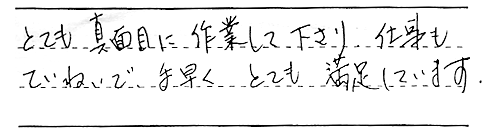 とても真面目に作業して下さり 仕事も
ていねいで、手早く とても 満足しています.